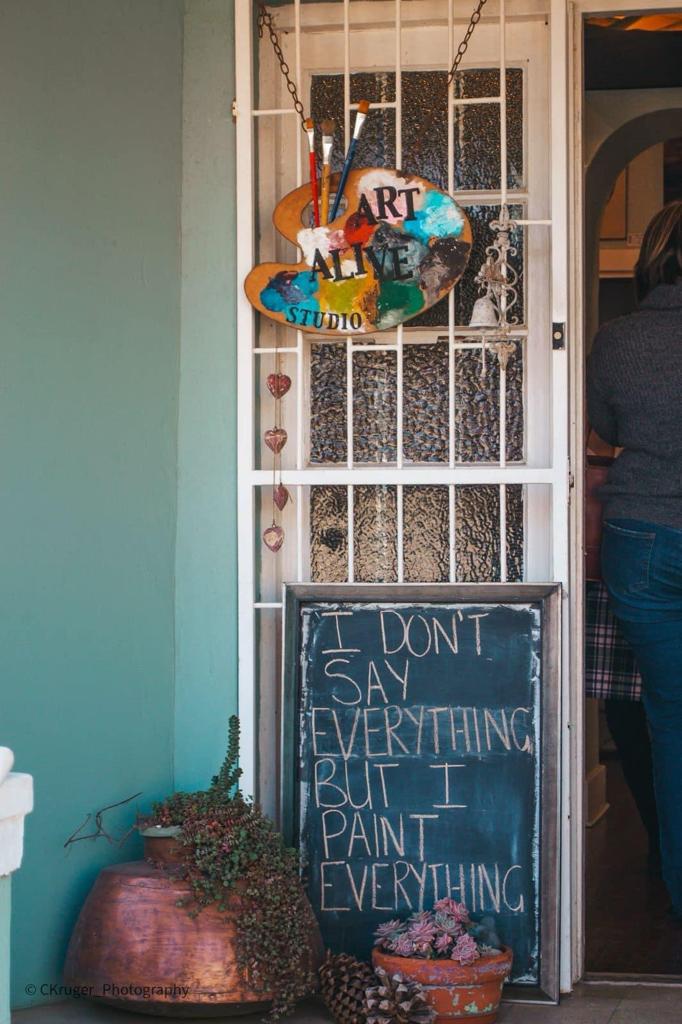 ART
ALIVE
STUDIO
I DON'T
SAY
EVERYTHING
BUT I
PAINT
EVERYTHING
© CKruger_Photography